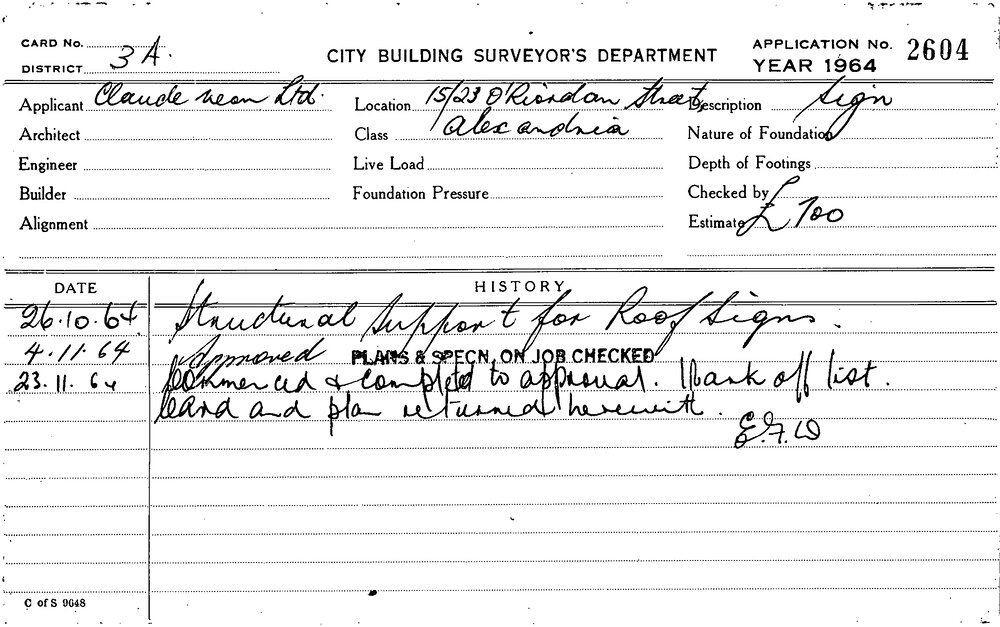 CARD No.
DISTRICT 3A.
CITY BUILDING SURVEYOR'S DEPARTMENT
APPLICATION No. 2604
YEAR 1964
Applicant Claude neon Ltd. Location 15/23 O'Riordan Street, Description Sign
Architect Class Alexandria Nature of Foundation
Engineer Live Load Depth of Footings
Builder Foundation Pressure Checked by
Alignment Estimate £700
DATE HISTORY
26.10.64 Structural Support for Roof Signs.
4.11.64 Approved PLANS & SPECN. ON JOB CHECKED
23.11.64 Commenced & completed to approval. Mark off list.
Card and plan returned herewith.
E.F.W
C of S 9648